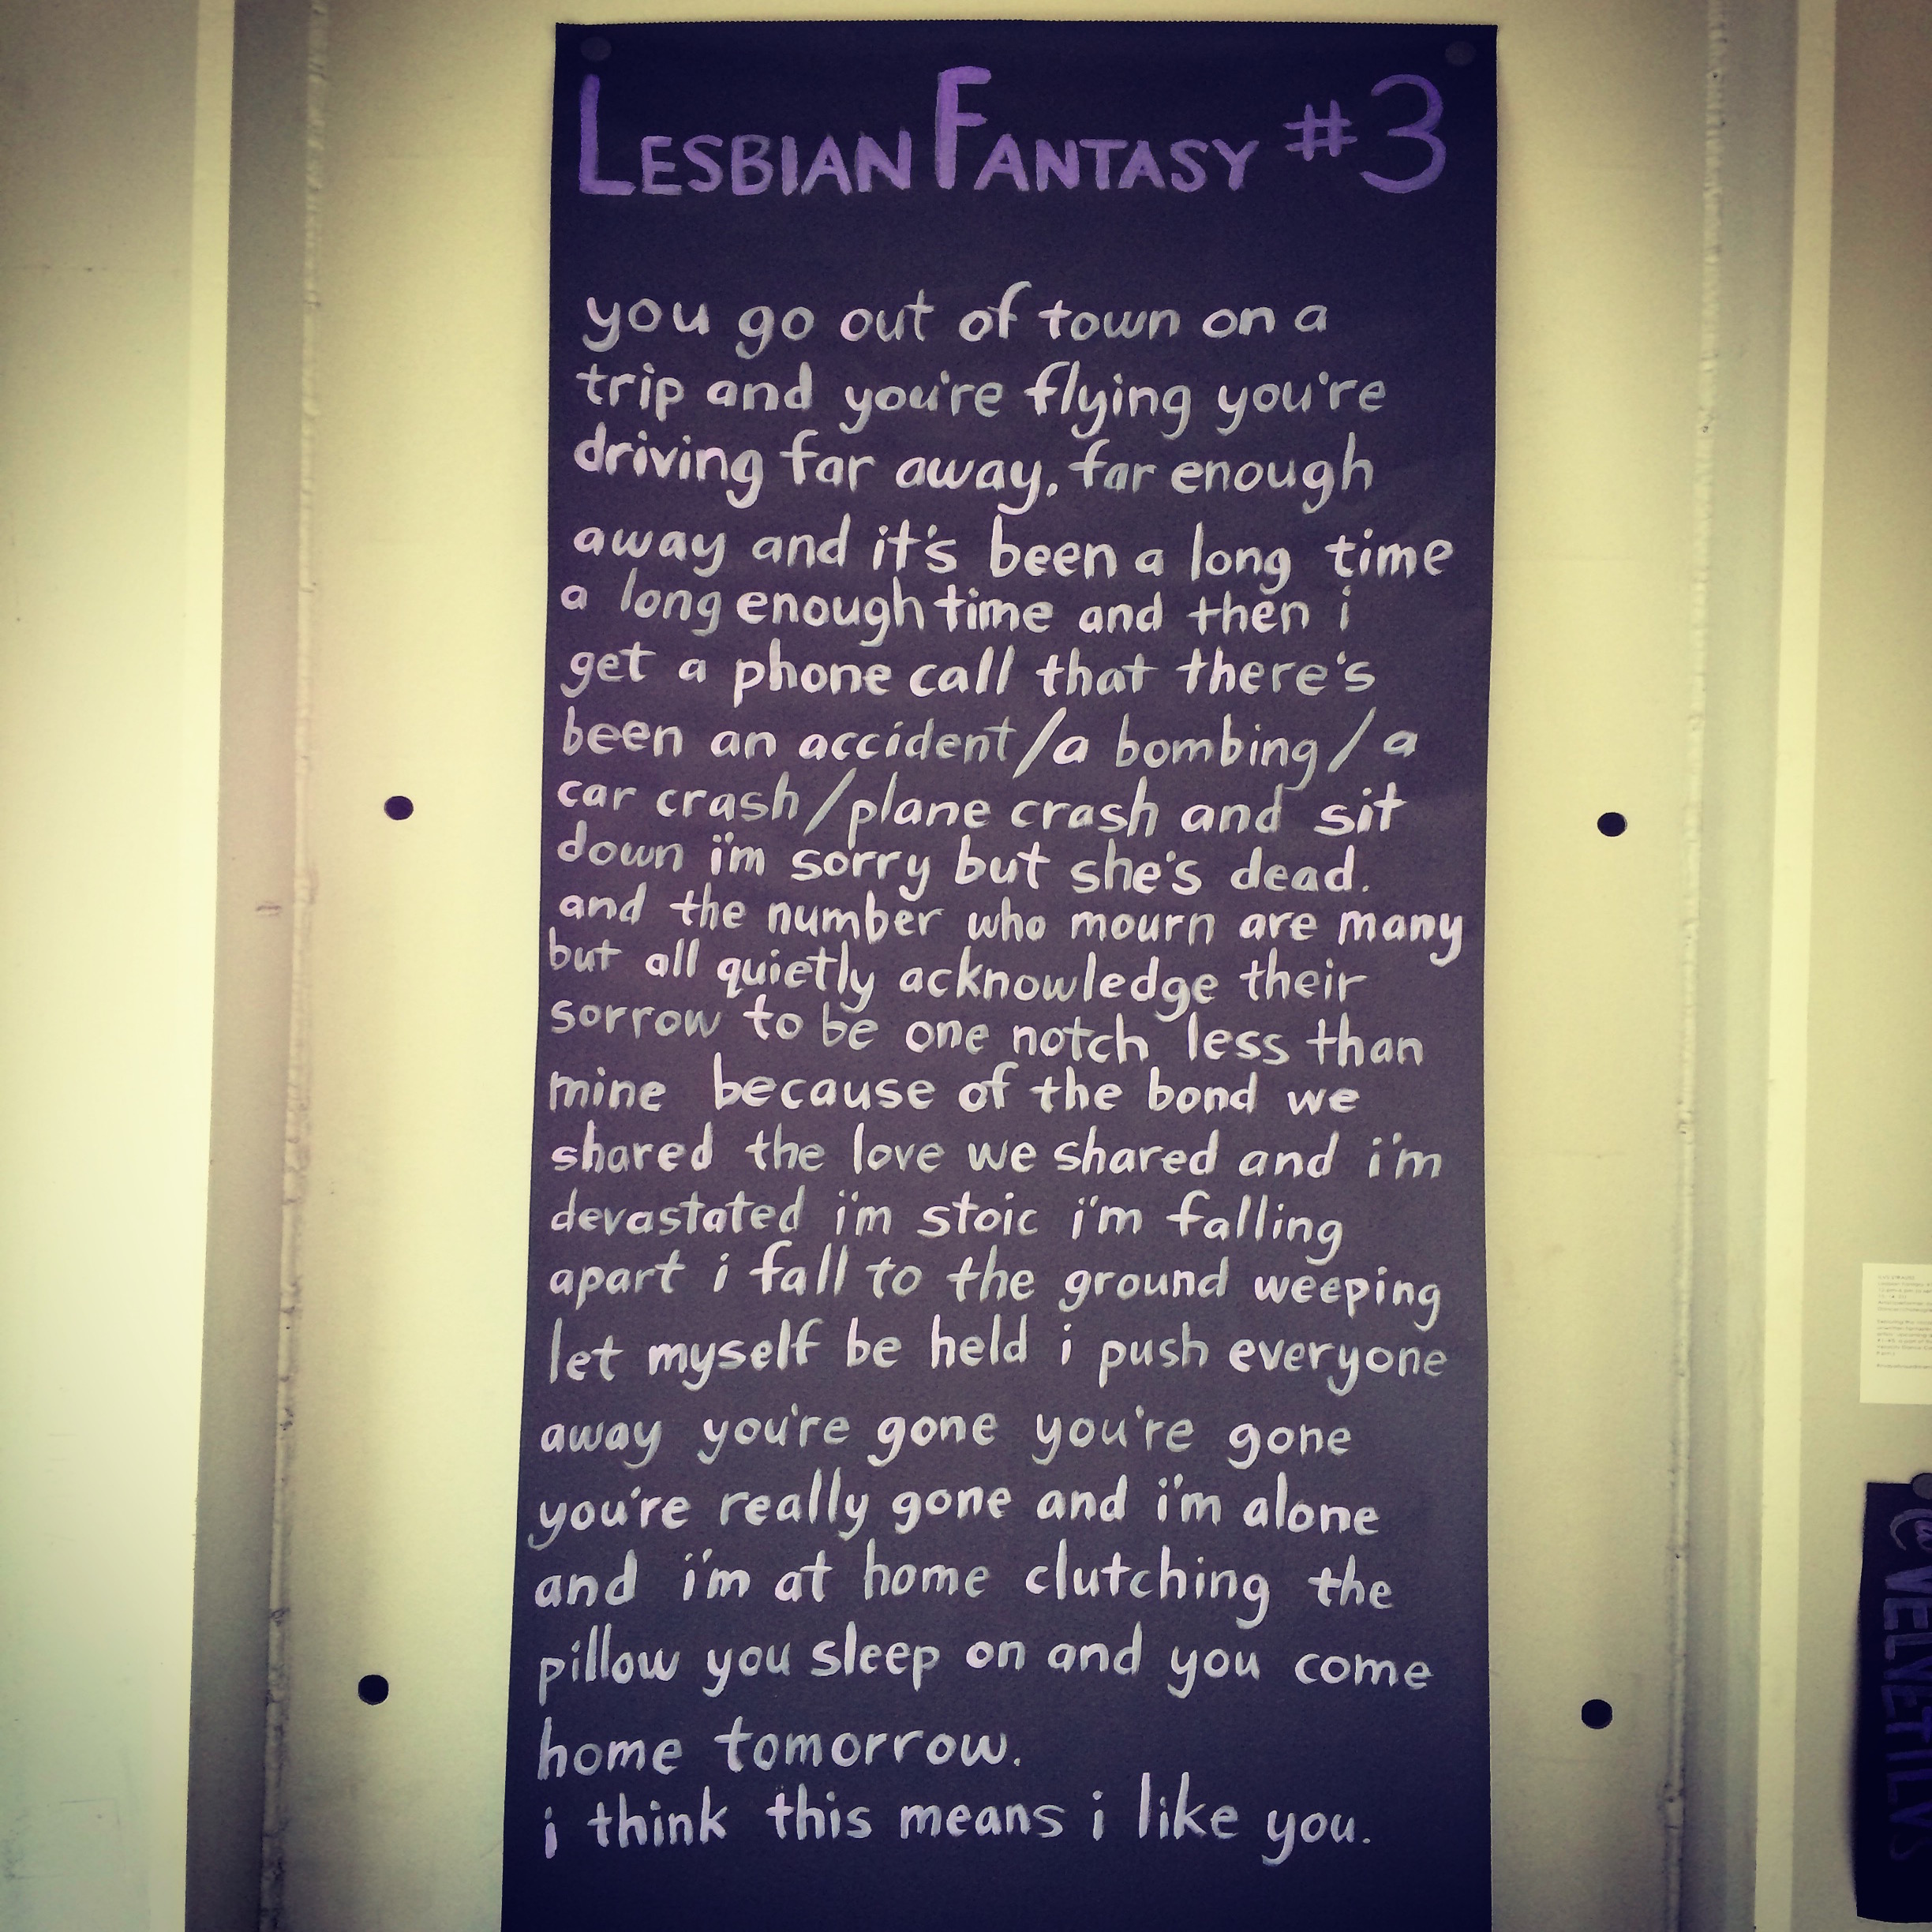 LESBIAN FANTASY #3
you go out of town on a
trip and you're flying you're
driving far away, far enough
away and it's been a long time
a long enough time and then i
get a phone call that there's
been an accident/a bombing/a
car crash/plane crash and sit
down i'm sorry but she's dead.
and the number who mourn are many
but all quietly acknowledge their
sorrow to be one notch less than
mine because of the bond we
shared the love we shared and i'm
devastated i'm stoic i'm falling
apart i fall to the ground weeping
let myself be held i push everyone
away you're gone you're gone
you're really gone and i'm alone
and i'm at home clutching the
pillow you sleep on and you come
home tomorrow.
i think this means i like you.